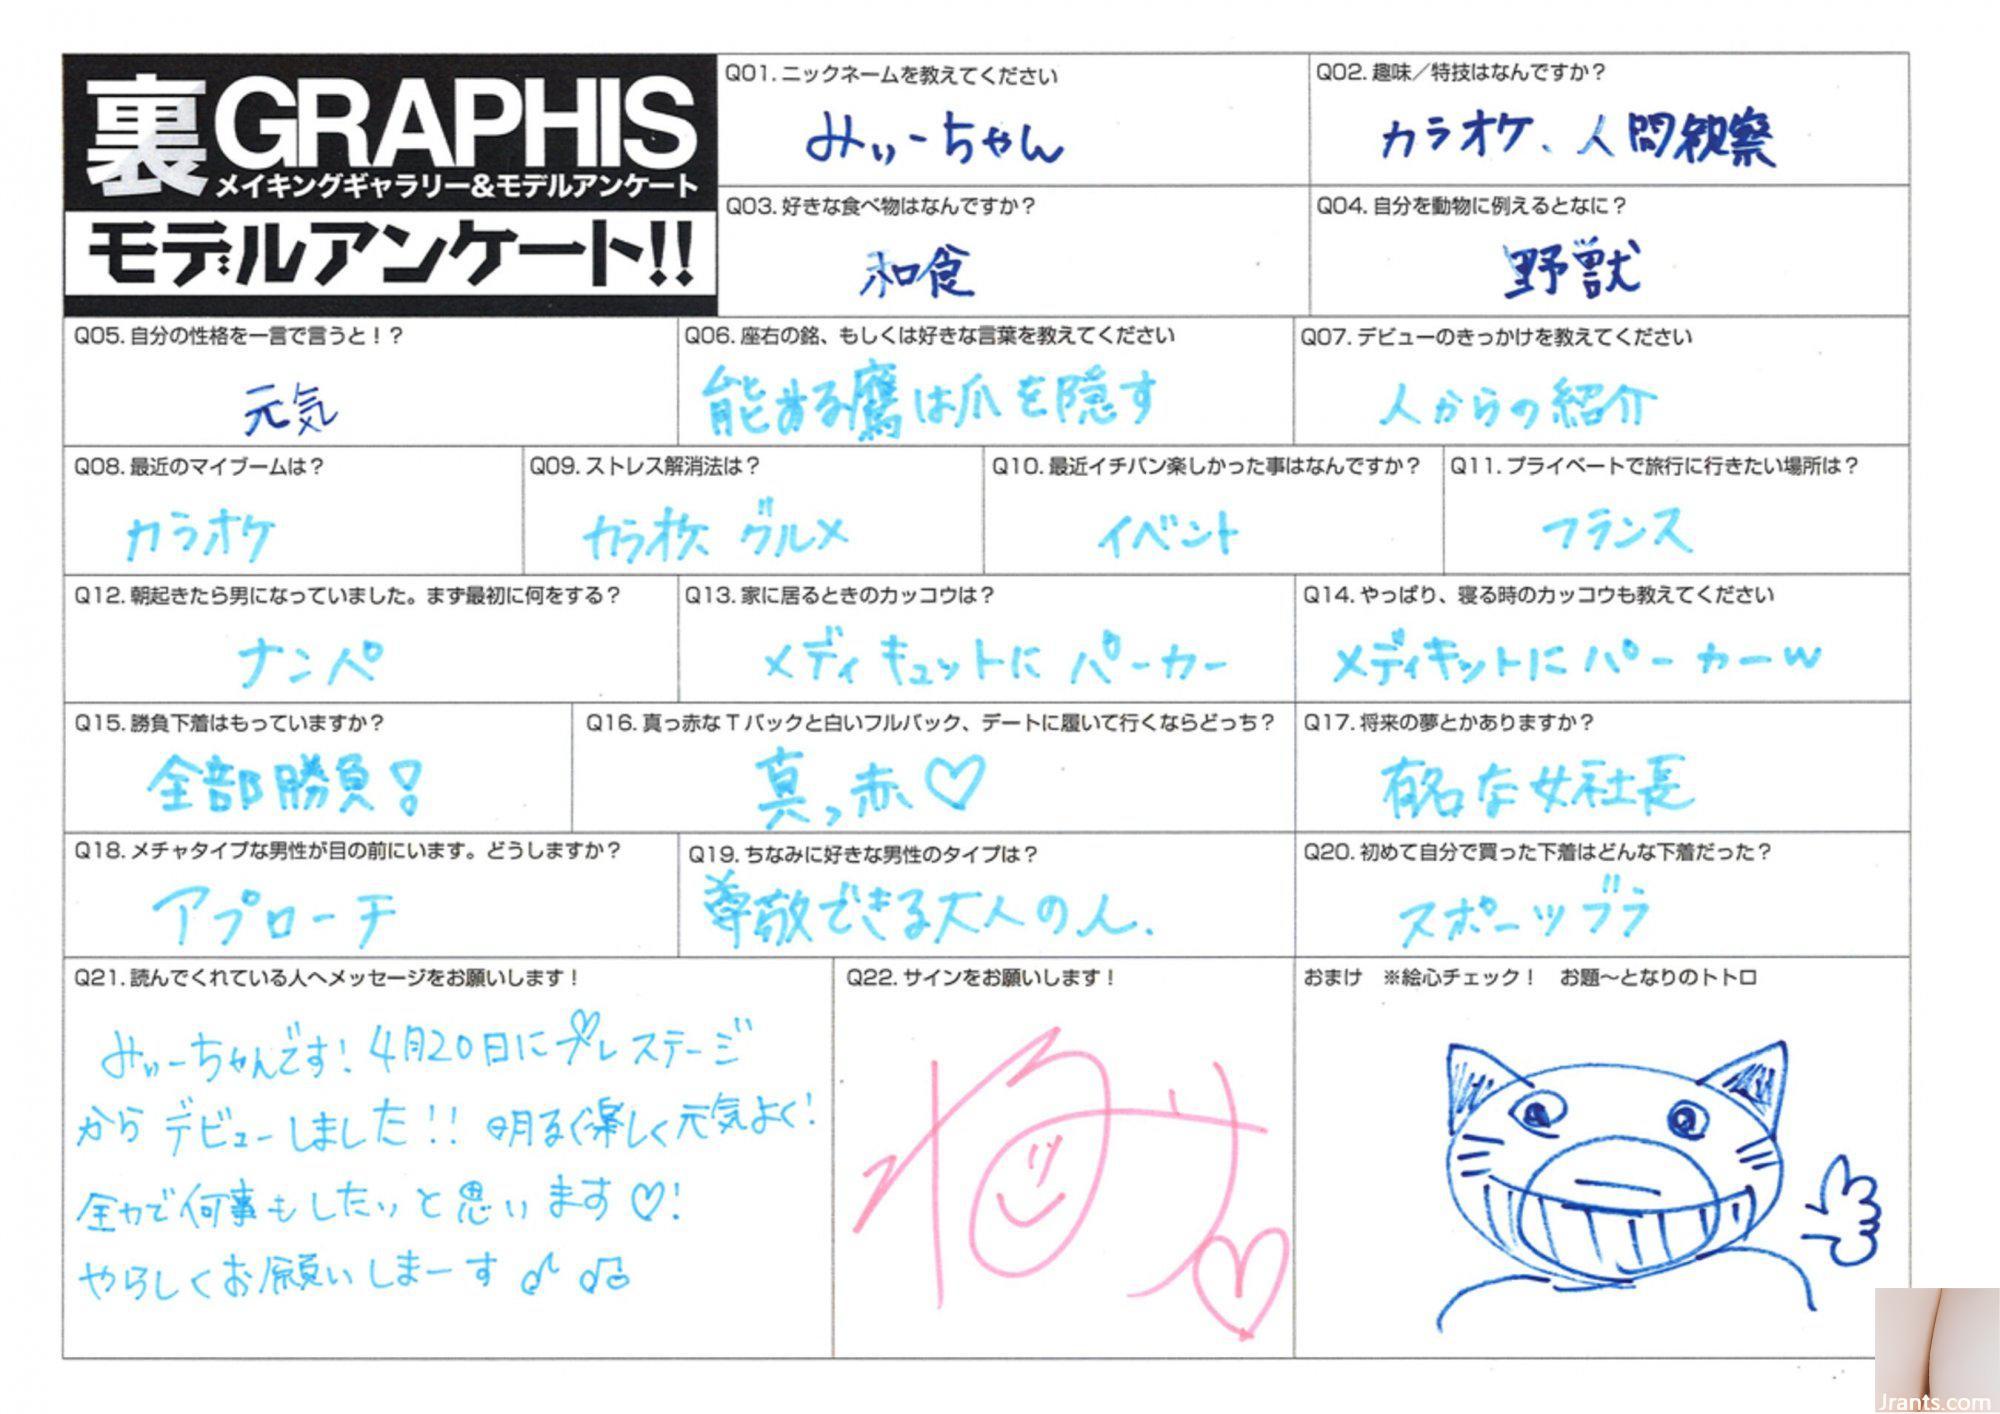 裏GRAPHIS
メイキングギャラリー&モデルアンケート
モデルアンケート!!
Q01.ニックネームを教えてください
みぃーちゃん
Q02.趣味／特技はなんですか？
カラオケ、人間観察
Q03.好きな食べ物はなんですか？
和食
Q04.自分を動物に例えるとなに？
野獣
Q05.自分の性格を一言で言うと！？
元気
Q06.座右の銘、もしくは好きな言葉を教えてください
能ある鷹は爪を隠す
Q07.デビューのきっかけを教えてください
人からの紹介
Q08.最近のマイブームは？
カラオケ
Q09.ストレス解消法は？
カラオケ、グルメ
Q10.最近イチバン楽しかった事はなんですか？
イベント
Q11.プライベートで旅行に行きたい場所は？
フランス
Q12.朝起きたら男になっていました。まず最初に何をする？
ナンパ
Q13.家に居るときのカッコウは？
メディキュットにパーカー
Q14.やっぱり、寝る時のカッコウも教えてください
メディキットにパーカーw
Q15.勝負下着はもっていますか？
全部勝負！
Q16.真っ赤なTバックと白いフルバック、デートに履いて行くならどっち？
真っ赤♡
Q17.将来の夢とかありますか？
有名な女社長
Q18.メチャタイプな男性が目の前にいます。どうしますか？
アプローチ
Q19.ちなみに好きな男性のタイプは？
尊敬できる大人の人.
Q20.初めて自分で買った下着はどんな下着だった？
スポーツブラ
Q21.読んでくれている人へメッセージをお願いします！
みぃーちゃんです！4月20日にプレステージ
からデビューしました!! 明るく楽しく元気よく！
全力で何事もしたいと思います♡！
やらしくお願いしまーす♪♫
Q22.サインをお願いします！
おまけ　※絵心チェック！　お題～となりのトトロ
Jrants.com